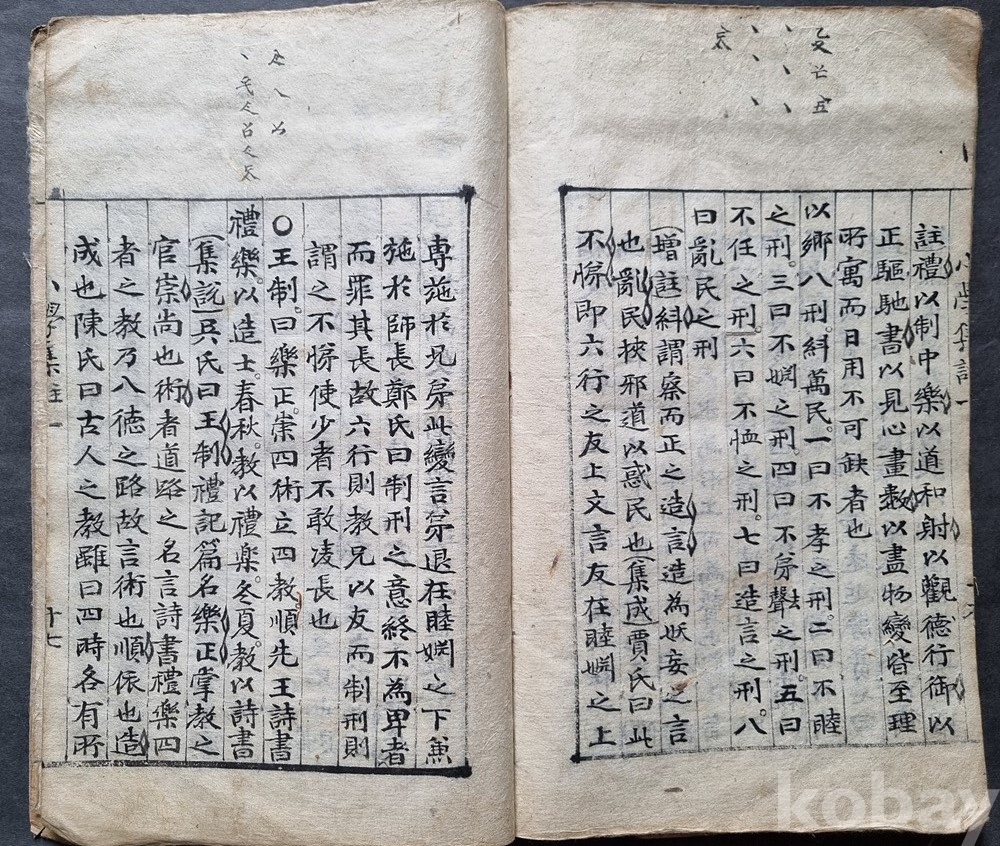 小學集註一
註禮以制中樂以道和射以觀德行御以
正驅馳書以見心畫數以盡物變皆至理
所寓而日用不可缺者也
以鄉八刑。糾萬民。一曰不孝之刑。二曰不睦
之刑。三曰不婣之刑四曰不弟之刑。五曰
不任之刑。六曰不恤之刑。七曰造言之刑。八
曰亂民之刑
(增註)糾謂察而正之造言造為妖妄之言
也亂民挾邪道以惑民也集成賈氏曰此
不悌即六行之友上文言友在睦婣之上
專施於兄弟此變言弟退在睦婣之下兼
施於師長鄭氏曰制刑之意終不為卑者
而罪其長故六行則教兄以友而制刑則
謂之不悌使少者不敢凌長也
○王制。曰樂正。崇四術立四教順先王詩書
禮樂。以造士。春秋。教以禮楽。冬夏。教以詩書
(集說)吳氏曰王制禮記篇名樂正掌教之
官崇尚也術者道路之名言詩書禮樂四
者之教乃入德之路故言術也順依也造
成也陳氏曰古人之教雖曰四時各有所
小學集註一
十七
kobay